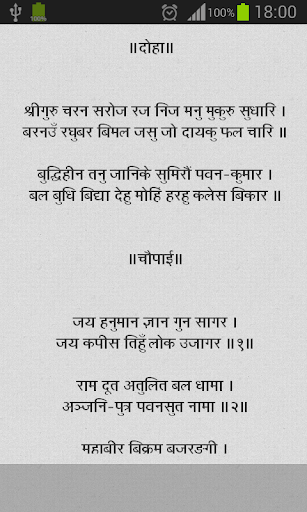 100% 18:00
॥दोहा॥
श्रीगुरु चरन सरोज रज निज मनु मुकुरु सुधारि ।
बरनउँ रघुबर बिमल जसु जो दायकु फल चारि ॥
बुद्धिहीन तनु जानिके सुमिरौं पवन-कुमार ।
बल बुधि बिद्या देहु मोहिं हरहु कलेस बिकार ॥
॥चौपाई॥
जय हनुमान ज्ञान गुन सागर ।
जय कपीस तिहुँ लोक उजागर ॥१॥
राम दूत अतुलित बल धामा ।
अञ्जनि-पुत्र पवनसुत नामा ॥२॥
महाबीर बिक्रम बजरङगी ।